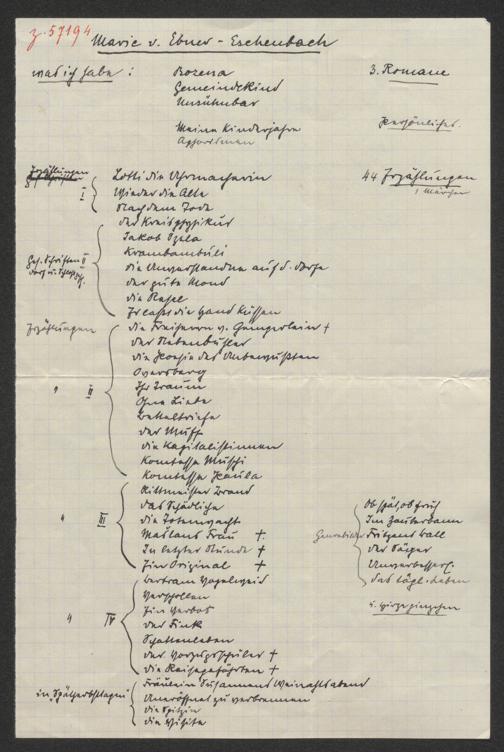 z. 57194
Marie v. Ebner-Eschenbach
was ich habe:
Bozena
Gemeindekind
Unsühnbar
3. Romane
Meine Kinderjahre
Aphorismen
Persönliches.
Erzählungen
I
Lotti die Uhrmacherin
Wieder die Alte
Nach dem Tode
44 Erzählungen
1 Märchen
Ges. Schriften II
Dorf u. Schloßg.
der Kreisphysikus
Jakob Szela
Krambambuli
die Unverstandene auf d. Dorfe
der gute Mond
die Resel
Er lasst die Hand küssen
Erzählungen
die Freiherrn v. Gemperlein +
" II
der Nebenbuhler
die Poesie des Unbewußten
Oversberg
Ihr Traum
Ohne Liebe
Bettelbriefe
der Muff
die Kapitalistinnen
Komtesse Muschi
Komtesse Paula
" III
Rittmeister Brand
das Schädliche
die Totenwacht
Maslans Frau +
In letzter Stunde +
Ein Original +
Ob spät, ob früh
Im Zauberbann
Fritzens Ball
der Säger
Unverbesserl.
das tägl. Leben
" IV
Bertram Vogelweid
Verschollen
Ein Verbot
der Fink
Schattenleben
der Vorzugsschüler +
die Reisegefährten +
in "Spätherbsttagen"
Fräulein Susannens Weinachtabend
Uneröffnet zu verbrennen
die Spitzin
die Visite